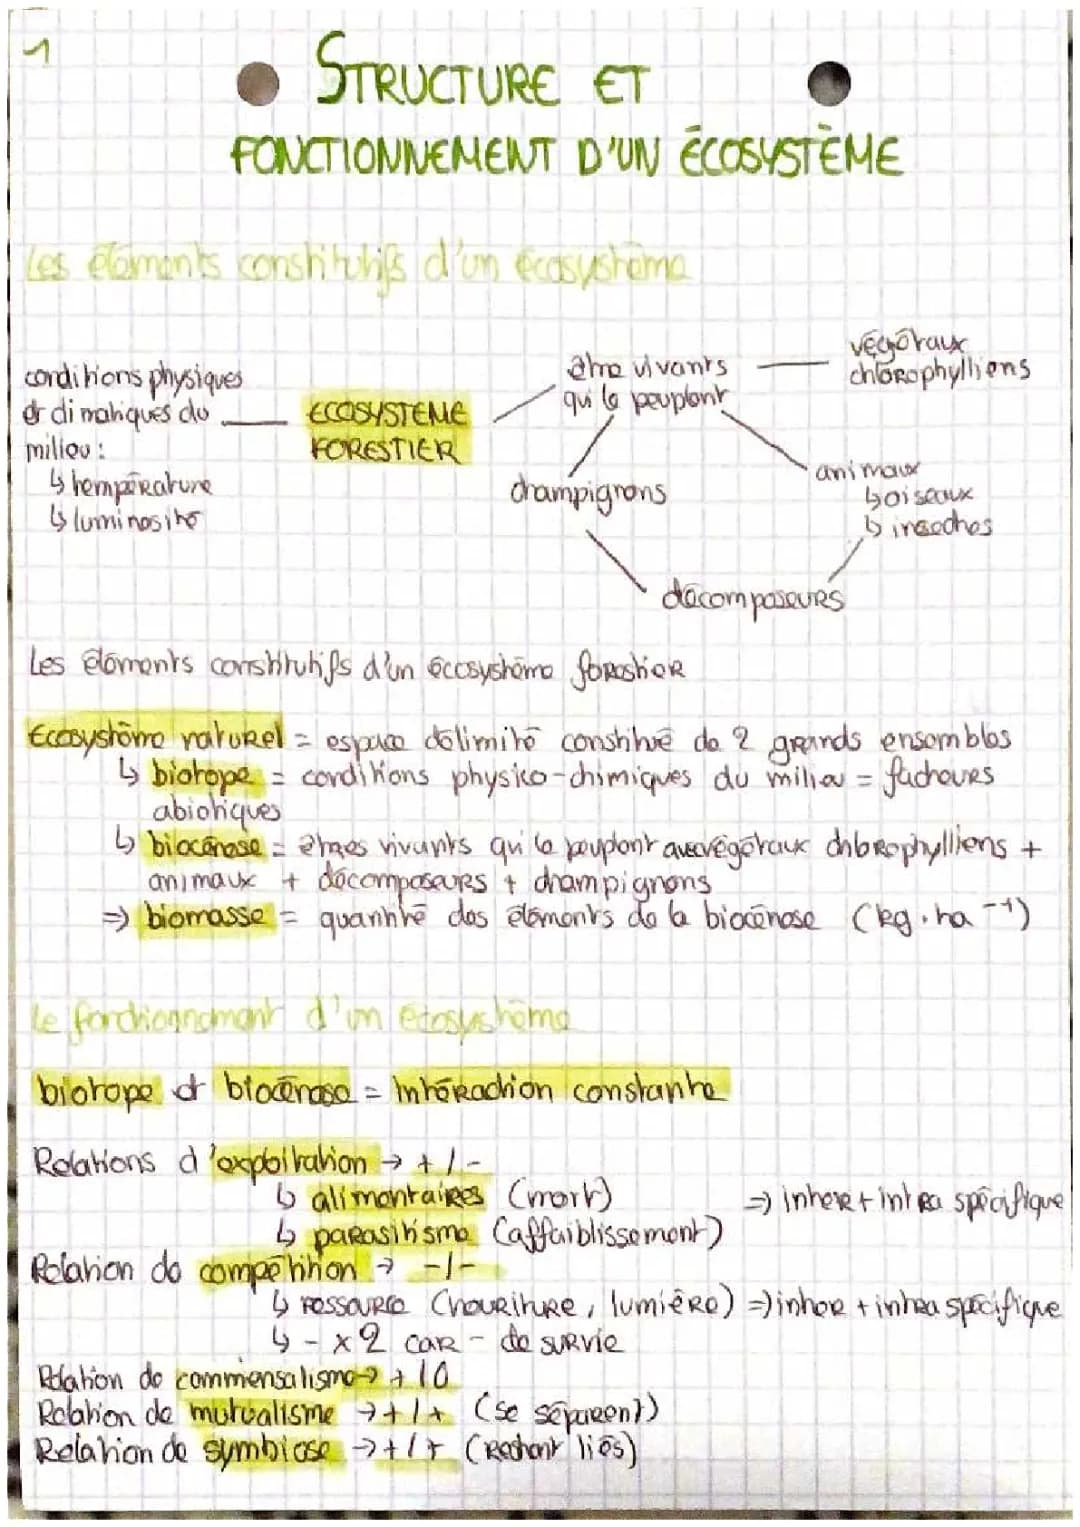 1
STRUCTURE ET
FONCTIONNEMENT D'UN ÉCOSYSTÈME
Les éléments constitutifs d'un écosystème
conditions physiques
et climatiques du
milieu :
↳ température
↳ luminosité
ECOSYSTEME
FORESTIER
être vivants
qui le peuplent
végétaux
chlorophylliens
champignons
animaux
↳ oiseaux
↳ insectes
décomposeurs
Les éléments constitutifs d'un écosystème forestier
Ecosystème naturel = espace délimité constitué de 2 grands ensembles
↳ biotope = conditions physico-chimiques du milieu = facteurs
abiotiques
↳ biocénose = êtres vivants qui le peuplent avec végétaux chlorophylliens +
animaux + décomposeurs + champignons
⇒ biomasse = quantité des éléments de la biocénose (kg.ha⁻¹)
Le fonctionnement d'un écosystème
biotope et biocénose = intéraction constante
Relations d'exploitation → +/-
↳ alimentaires (mort) ⇒ inter + intra spécifique
↳ parasitisme (affaiblissement)
Relation de compétition → -/-
↳ ressource (nouriture, lumière) ⇒ inter + intra spécifique
↳ - x2 car - de survie
Relation de commensalisme → +/0
Relation de mutualisme → +/+ (se séparent)
Relation de symbiose → +/+ (restent liés)